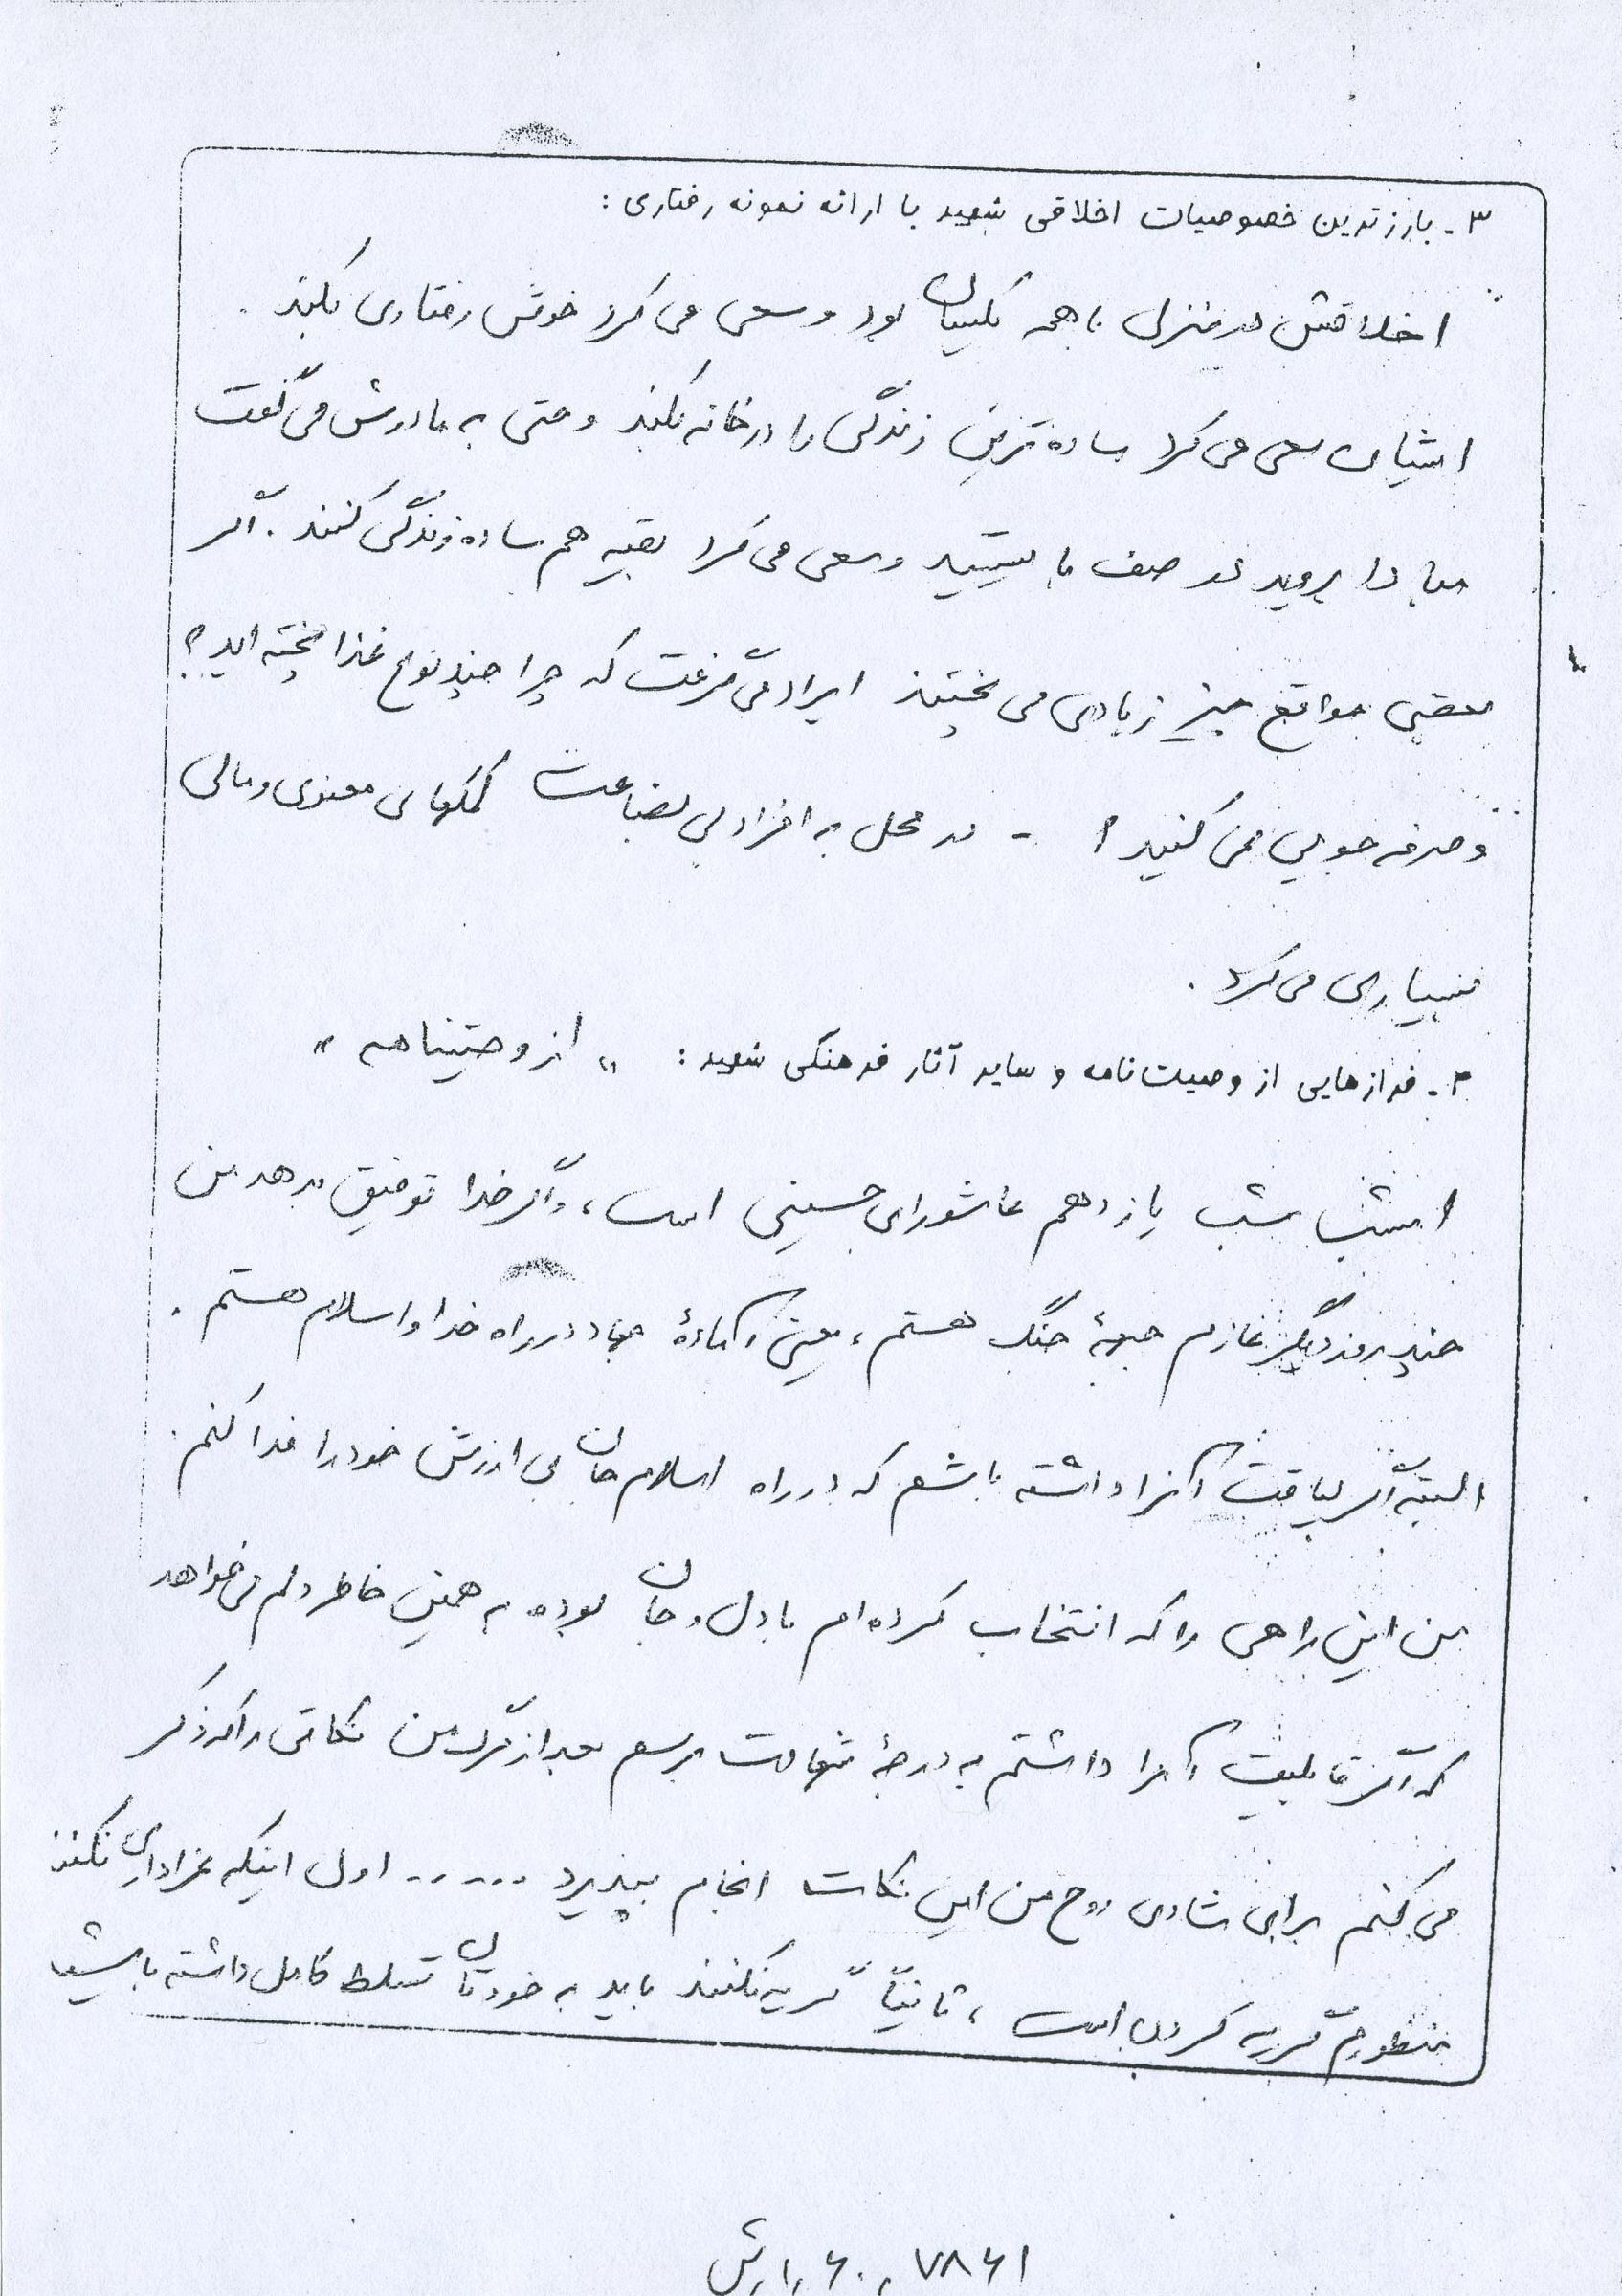 ۳ـ بارزترین خصوصیات اخلاقی شهید با ارائه نمونه رفتاری :
اخلاقش در منزل با همه یکسان بود و سعی می کرد خوش رفتاری بکند .
ایشان سعی می کرد ساده ترین زندگی را در خانه بکند و حتی به مادرش می گفت
مبادا بروید در صف بایستید و سعی می کرد بقیه هم ساده زندگی کنند . اگر
بعضی مواقع چیز زیادی می پختند ایراد می گرفت که چرا چند نوع غذا پخته اید ؟
و صرفه جویی نمی کنید ؟ - در محل به افراد بی بضاعت کمکهای معنوی و مالی
بسیاری می کرد .
۴ـ فرازهایی از وصیت‌نامه و سایر آثار فرهنگی شهید : " از وصیتنامه "
امشب شب یازدهم عاشورای حسینی است ، واگر خدا توفیق بدهد من
چند روز دیگر عازم جبههٔ جنگ هستم ، یعنی آمادهٔ جهاد در راه خدا و اسلام هستم .
البته اگر لیاقت آنرا داشته باشم که در راه اسلام جان بی ارزش خود را فدا کنم .
من این راهی را که انتخاب کرده ام با دل و جان بوده به همین خاطر دلم می خواهد
که اگر قابلیت آنرا داشتم به درجهٔ شهادت برسم بعد از مرگ من نکاتی را که ذکر
می کنم برای شادی روح من این نکات انجام بپذیرد ...... اول اینکه عزاداری نکنند
منظورم گریه کردن است ، ثانیاً گریه نکنند باید به خودتان تسلط کامل داشته باشید
۷۸۶۱ ۶۰